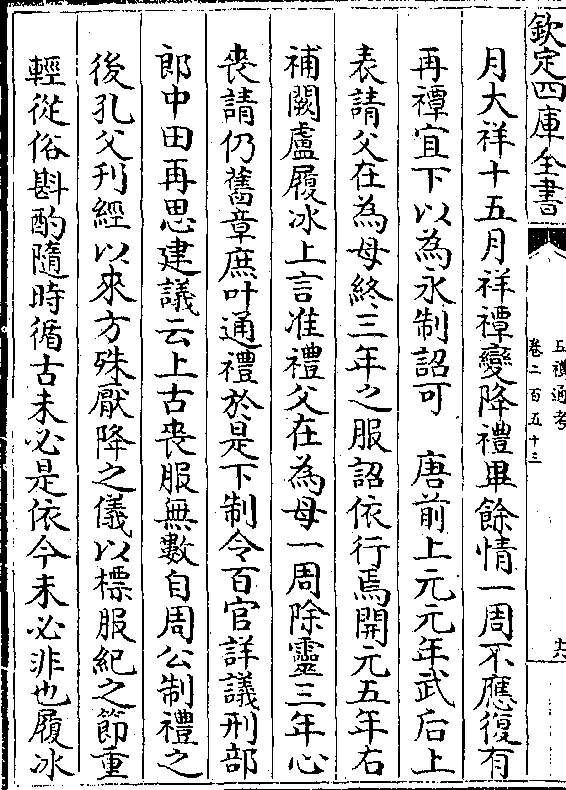 欽定四庫全書
五禮通考
卷二百五十三
六
月大祥十五月祥禫變降禮畢餘情一周不應復有
再禫宜下以為永制詔可　唐前上元元年武后上
表請父在為母終三年之服詔依行焉開元五年右
補闕盧履冰上言准禮父在為母一周除靈三年心
喪請仍舊章庶叶通禮於是下制令百官詳議刑部
郎中田再思建議云上古喪服無數自周公制禮之
後孔父刋經以來方殊厭降之儀以標服紀之節重
輕從俗斟酌隨時循古未必是依今未必非也履冰